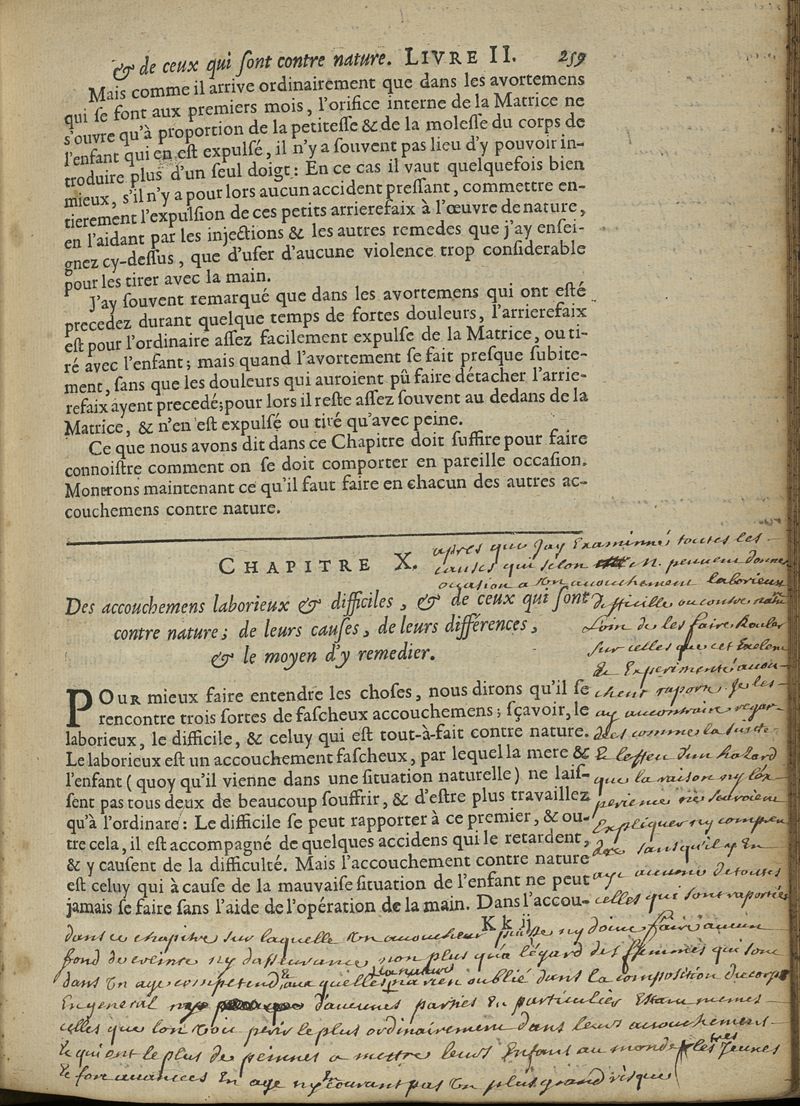 & de ceux qui ſont contre nature. LIVRE II. 259
Mais comme il arrive ordinairement que dans les avortemens
qui ſe font aux premiers mois, l'orifice interne de la Matrice ne
s'ouvre qu'à proportion de la petiteſſe & de la moleſſe du corps de
l'enfant qui en eſt expulſé, il n'y a ſouvent pas lieu d'y pouvoir in-
troduire plus d'un ſeul doigt: En ce cas il vaut quelquefois bien
mieux, s'il n'y a pour lors aucun accident preſſant, commettre en-
tierement l'expulſion de ces petits arrierefaix à l'œuvre de nature,
en l'aidant par les injections & les autres remedes que j'ay enſei-
gnez cy-deſſus, que d'uſer d'aucune violence trop conſiderable
pour les tirer avec la main.
J'ay ſouvent remarqué que dans les avortemens qui ont eſté
precedez durant quelque temps de fortes douleurs, l'arrierefaix
eſt pour l'ordinaire aſſez facilement expulſe de la Matrice, ou ti-
ré avec l'enfant; mais quand l'avortement ſe fait preſque ſubite-
ment, ſans que les douleurs qui auroient pû faire détacher l'arrie-
refaix ayent precedé; pour lors il reſte aſſez ſouvent au dedans de la
Matrice, & n'en eſt expulſé ou tiré qu'avec peine.
Ce que nous avons dit dans ce Chapitre doit ſuffire pour faire
connoiſtre comment on ſe doit comporter en pareille occaſion.
Montrons maintenant ce qu'il faut faire en chacun des autres ac-
couchemens contre nature.
CHAPITRE X.
Des accouchemens laborieux & difficiles, & de ceux qui ſont
contre nature; de leurs cauſes, de leurs différences,
& le moyen d'y remedier.
POUR mieux faire entendre les choſes, nous dirons qu'il ſe
rencontre trois ſortes de faſcheux accouchemens; ſçavoir, le
laborieux, le difficile, & celuy qui eſt tout-à-fait contre nature.
Le laborieux eſt un accouchement faſcheux, par lequel la mere &
l'enfant (quoy qu'il vienne dans une ſituation naturelle) ne laiſ-
ſent pas tous deux de beaucoup ſouffrir, & d'eſtre plus travaillez
qu'à l'ordinare: Le difficile ſe peut rapporter à ce premier, & ou-
tre cela, il eſt accompagné de quelques accidens qui le retardent,
& y cauſent de la difficulté. Mais l'accouchement contre nature
eſt celuy qui à cauſe de la mauvaiſe ſituation de l'enfant ne peut
jamais ſe faire ſans l'aide de l'opération de la main. Dans l'accou-
K k ij
apres que Jay Examinné toutes les
causes qui selon m. peuvent donner
occasion a un acouchement laborieux
difficille ou contre
Loin de les faire Rouler
sur celles que cet Exelent
& Experimenté acou-
cheur raporte Je les
ay au contraire regar-
dés comme la suitte
& leffeu dun hazard
que la raison ny lex
perience ne sauroient
Expliquer ny compren
dre sans quil y En
aye aucune de toutes
celles qui sont raportées
dans ce chapitre sur laquelle un acoucheur puisse ny doive faire aucun
fond de crainte ny dasseurance non plus qua légard des femmes qui sont
dans un age aux quelles la nature na rien oublié dans la composition du corps
En general daucunes parties En particulier Estant mesmes
celles que lon voit perir le plus ordinairement dans leurs acouchement
& qui ont le plus de peinnes a mettre leurs Enfant au monde les tres Jeunes
& fort avancées En age ny courant pas un plus grand risque